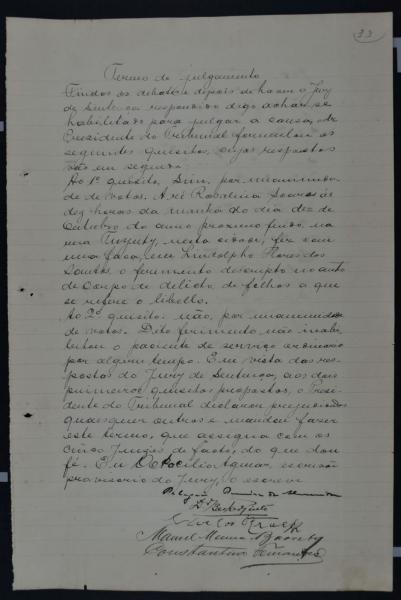 33
Termo de julgamento
Findos os debates e depois de haver o Jury
de Sentença respondido digo achar-se
habilitado para julgar a causa, o
Presidente do Tribunal formulou os
seguintes quesitos, cujas respostas
vão em seguida:
Ao 1º quesito, Sim, por unanimida-
de de votos. A ré Rosalina Soares ás
dez horas da manhã do dia dez de
Outubro do anno proximo findo, na
rua nesta cidade, fez com
uma faca, em Lindolpho Flores dos
Santos o ferimento descripto no auto
de corpo de delicto de folhas a que
se refere o libello.
Ao 2º quesito: não, por unanimidade
de votos. Dito ferimento não inhabi-
litou o paciente de serviço ordinario
por algum tempo. Em vista das res-
postas do Jury de Sentença, aos dois
primeiros quesitos propostos, o Presi-
dente do Tribunal declarou prejudicados
quaesquer outros e mandou fazer
este termo, que assigna com os
cinco Juizes de facto, do que dou
fé. Eu Aguiar, escrivão
provisorio do Jury, o escrevi
Manoel
Constantino Fernandes